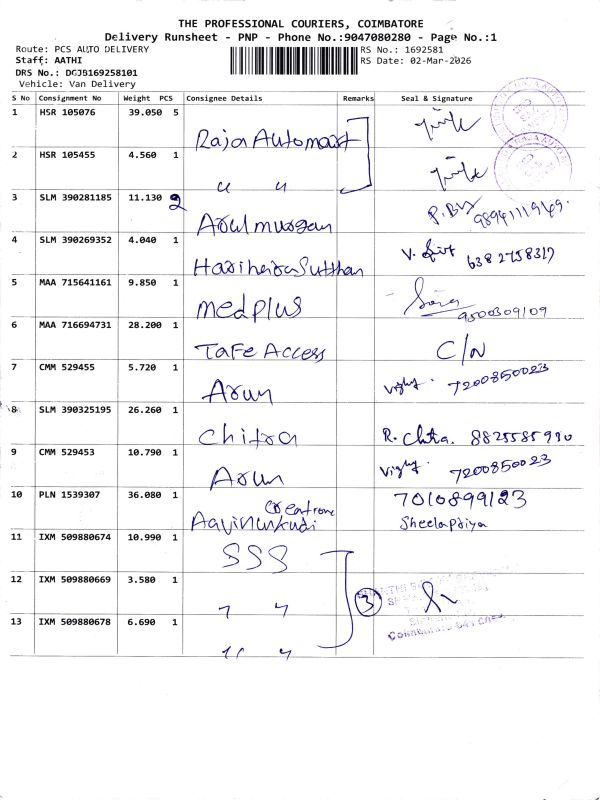 THE PROFESSIONAL COURIERS, COIMBATORE
Delivery Runsheet - PNP - Phone No.:9047080280 - Page No.:1
Route: PCS AUTO DELIVERY
Staff: AATHI
DRS No.: DGJB169258101
Vehicle: Van Delivery
RS No.: 1692581
RS Date: 02-Mar-2026
S No Consignment No Weight PCS Consignee Details Remarks Seal & Signature
1 HSR 105076 39.050 5 Raja Automart
2 HSR 105455 4.560 1 " "
3 SLM 390281185 11.130 2 Arul murgan
4 SLM 390269352 4.040 1 Hariharasutthan 6382758317
5 MAA 715641161 9.850 1 medplus 9500309109
6 MAA 716694731 28.200 1 TaFe Access C/N
7 CMM 529455 5.720 1 Arun 7200850023
8 SLM 390325195 26.260 1 Chitra R. Chitra. 8825585990
9 CMM 529453 10.790 1 Arun 7200850023
10 PLN 1539307 36.080 1 7010899123
Sheelapriya
11 IXM 509880674 10.990 1 SSS
12 IXM 509880669 3.580 1 " " 3
13 IXM 509880678 6.690 1 " "